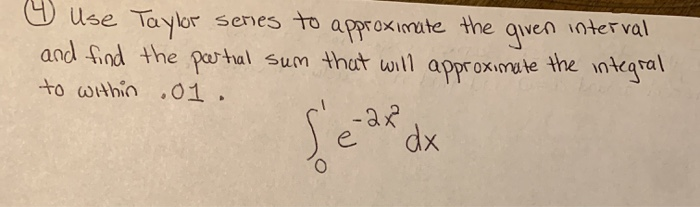 ④ Use Taylor series to approximate the given interval
and find the partial sum that will approximate the integral
to within .01.
∫₀¹ e^(-2x²) dx